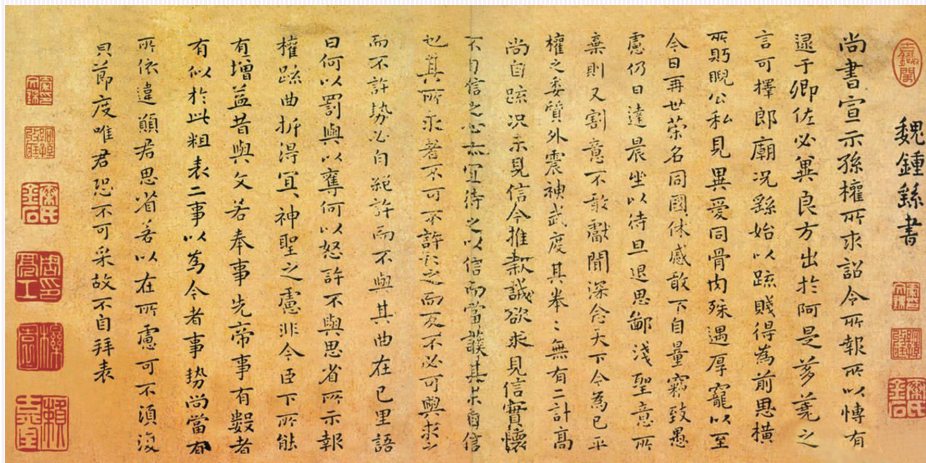 魏鍾繇書
尚書宣示孫權所求詔令所報所以愽有
逮于卿佐必冀良方出於阿是芻蕘之
言可擇郎廟況繇始以疏賤得為前思橫
所眄睨公私見異愛同骨肉殊遇厚寵以至
今日再世榮名同國休感敢不自量竊致愚
慮仍日達晨坐以待旦退思鄙淺聖意所
棄則又割意不敢獻聞深念天下今為已平
權之委質外震神武度其拳〻無有二計高
尚自疏況未見信今推款誠欲求見信實懷
不自信之心亦宜待之以信而當護其未自信
也其所求者不可不許許之而反不必可與求之
而不許勢必自絕許而不與其曲在己里語
曰何以罰與以奪何以怒許不與思省所示報
權疏曲折得宜神聖之慮非今臣下所能
有增益昔與文若奉事先帝事有數者
有似於此粗表二事以為今者事勢尚當有
所依違願君思省若以在所慮可不須復
貝節度唯君恐不可采故不自拜表